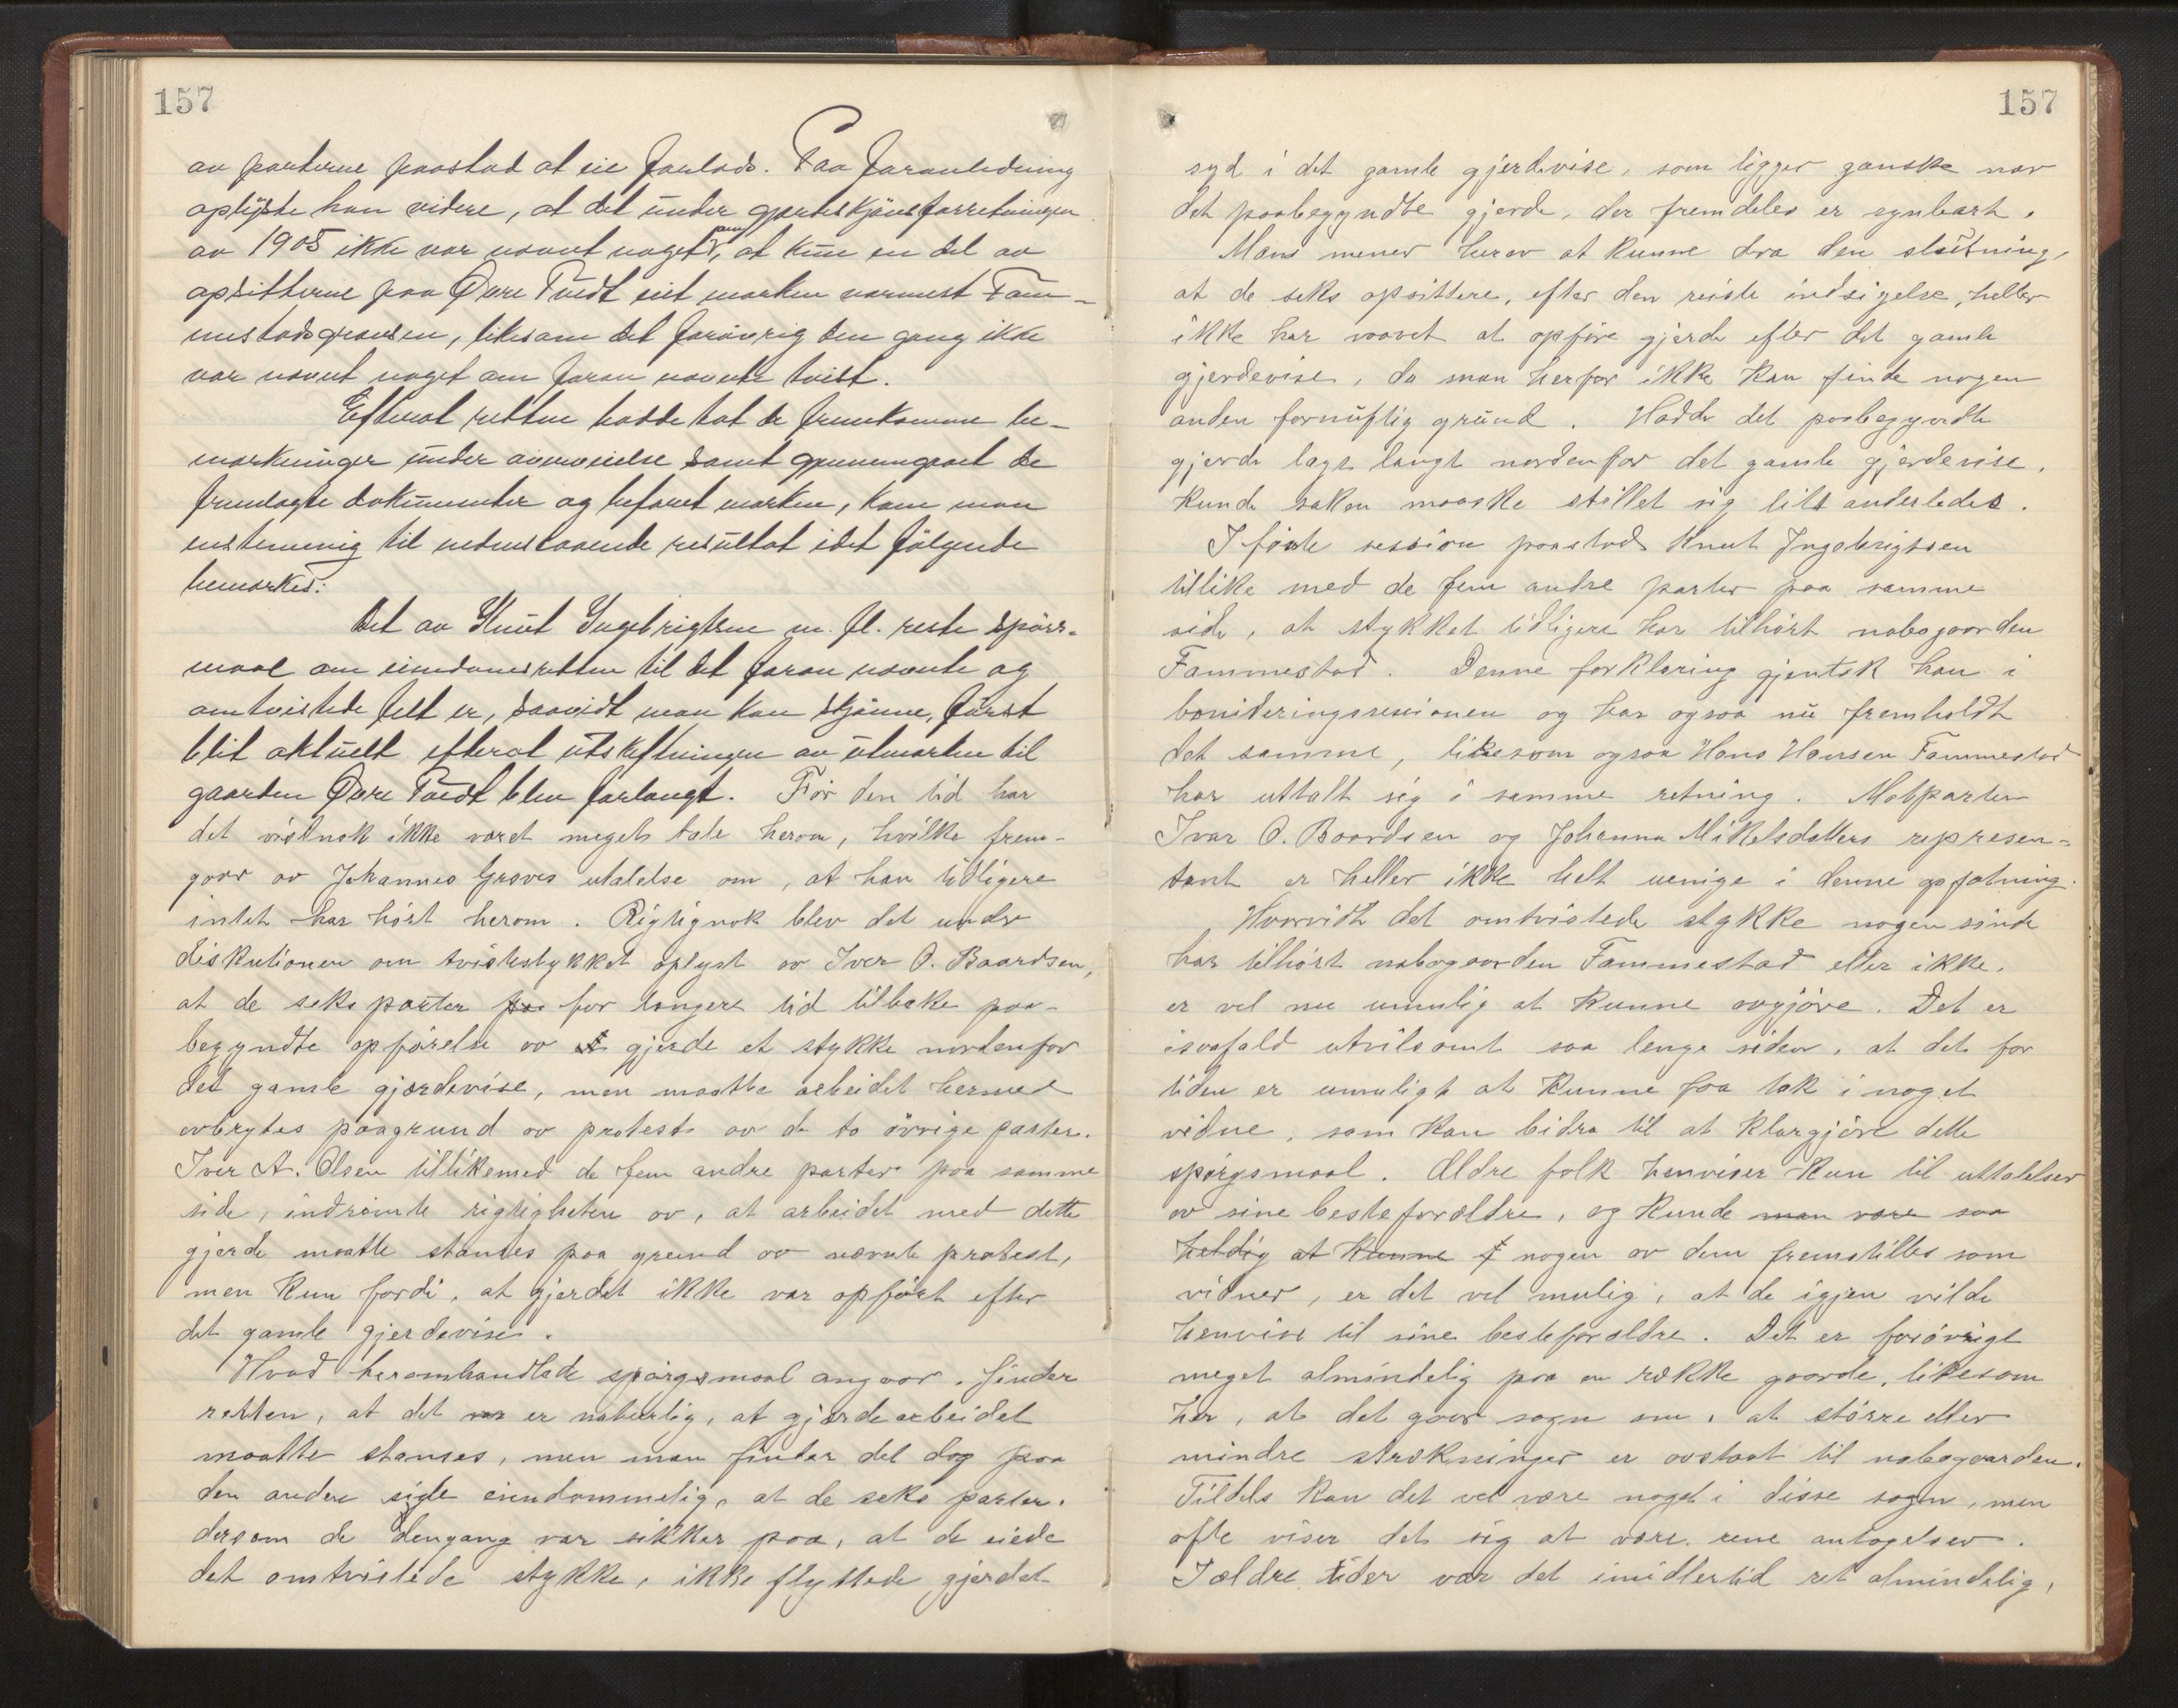 157
av parterne paastod at eie forlods. Paa foranledning
oplyste han videre, at det under gjerdeskjönsforretningen
av 1905 ikke var nævnt noget om, at kun en del av
opsitterne paa Övre Tvedt eiet marken nærmest Fam-
mestadgrænsen, likesom det forövrig den gang ikke
var nævnt noget om foran nævnte tvist.
Efterat retten hadde tat de fremkomne be-
merkninger under overveielse samt gjennemgaaet de
fremlagte dokumenter og befaret marken, kom man
enstemmig til nedenstaaende resultat idet fölgende
bemerkes:
Det av Knut Ingebrigtsen m. fl. reiste spörs-
maal om eiendomsretten til det foran nævnte og
omtvistede felt er, saavidt man kan skjönne, först
blit aktuelt efterat utskiftningen av utmarken til
gaarden Övre Tvedt blev forlangt. För den tid har
det vistnok ikke været meget tale herom, hvilke frem-
gaar av Johannes Groves utalelse om, at han tidligere
intet har hört herom. Rigtignok blev det under
diskutionen om tvistestykket oplyst av Iver O. Baardsen,
at de seks parter for længere tid tilbake paa-
begyndte opförelse av gjerde et stykke nordenfor
det gamle gjærdevise, men maatte arbeidet hermed
avbrytes paagrund av protest av de to övrige parter.
Iver A. Olsen tillikemed de fem andre parter paa samme
side, indrömte rigtigheten av, at arbeidet med dette
gjerde maatte stanses paa grund av nævnte protest,
men kun fordi, at gjerdet ikke var opfört efter
det gamle gjerdevise.
Hvad heromhandlede spörgsmaal angaar, finder
retten, at det er naturlig, at gjærdearbeidet
maatte stanses, men man finder det dog paa
den anden side eiendommelig, at de seks parter,
dersom de dengang var sikker paa, at de eiede
det omtvistede stykke, ikke flyttede gjerdet
157
syd i det gamle gjerdevise, som ligger ganske nær
det paabegyndte gjerde, der fremdeles er synbart.
Man mener herav at kunne dra den slutning,
at de seks opsittere, efter den reiste indsigelse, heller
ikke har vovet at opföre gjerde efter det gamle
gjerdevise, da man herfor ikke kan finde nogen
anden fornuftig grund. Hadde det paabegyndte
gjerde lagt langt nordenfor det gamle gjerdevise,
kunde saken maaske stillet sig litt anderledes.
I förste session paastod Knut Ingebrigtsen
tillike med de fem andre parter paa samme
side, at stykket tidligere har tilhört nabogaarden
Fammestad. Denne forklaring gjentok han i
boniteringssessionen og har ogsaa nu fremholdt
det samme, likesom ogsaa Hans Hansen Fammestad
har uttalt sig i samme retning. Motparten
Ivar O. Baardsen og Johanna Mikelsdatters represen-
tant er heller ikke helt uenige i denne opfatning.
Hvorvidt det omtvistede stykke nogen sinde
har tilhört nabogaarden Fammestad eller ikke,
er vel nu umulig at kunne avgjöre. Det er
isaafald utvilsomt saa lenge siden, at det for
tiden er umuligt at kunne faa tak i noget
vidne, som kan bidra til at klargjöre dette
spörgsmaal. Ældre folk henviser kun til uttalelser
av sine besteforældre, og kunde man være saa
heldig at kunne f nogen av dem fremstilles som
vidner, er det vel mulig, at de igjen vilde
henvise til sine besteforældre. Det er forövrigt
meget almindelig paa en række gaarde, likesom
her, at det gaar sagn om, at större eller
mindre strekninger er avstaat til nabogaarden.
Tildels kan det vel være noget i disse sagn, men
ofte viser det sig at være rene antagelser.
I ældre tider var det imidlertid ret almindelig,